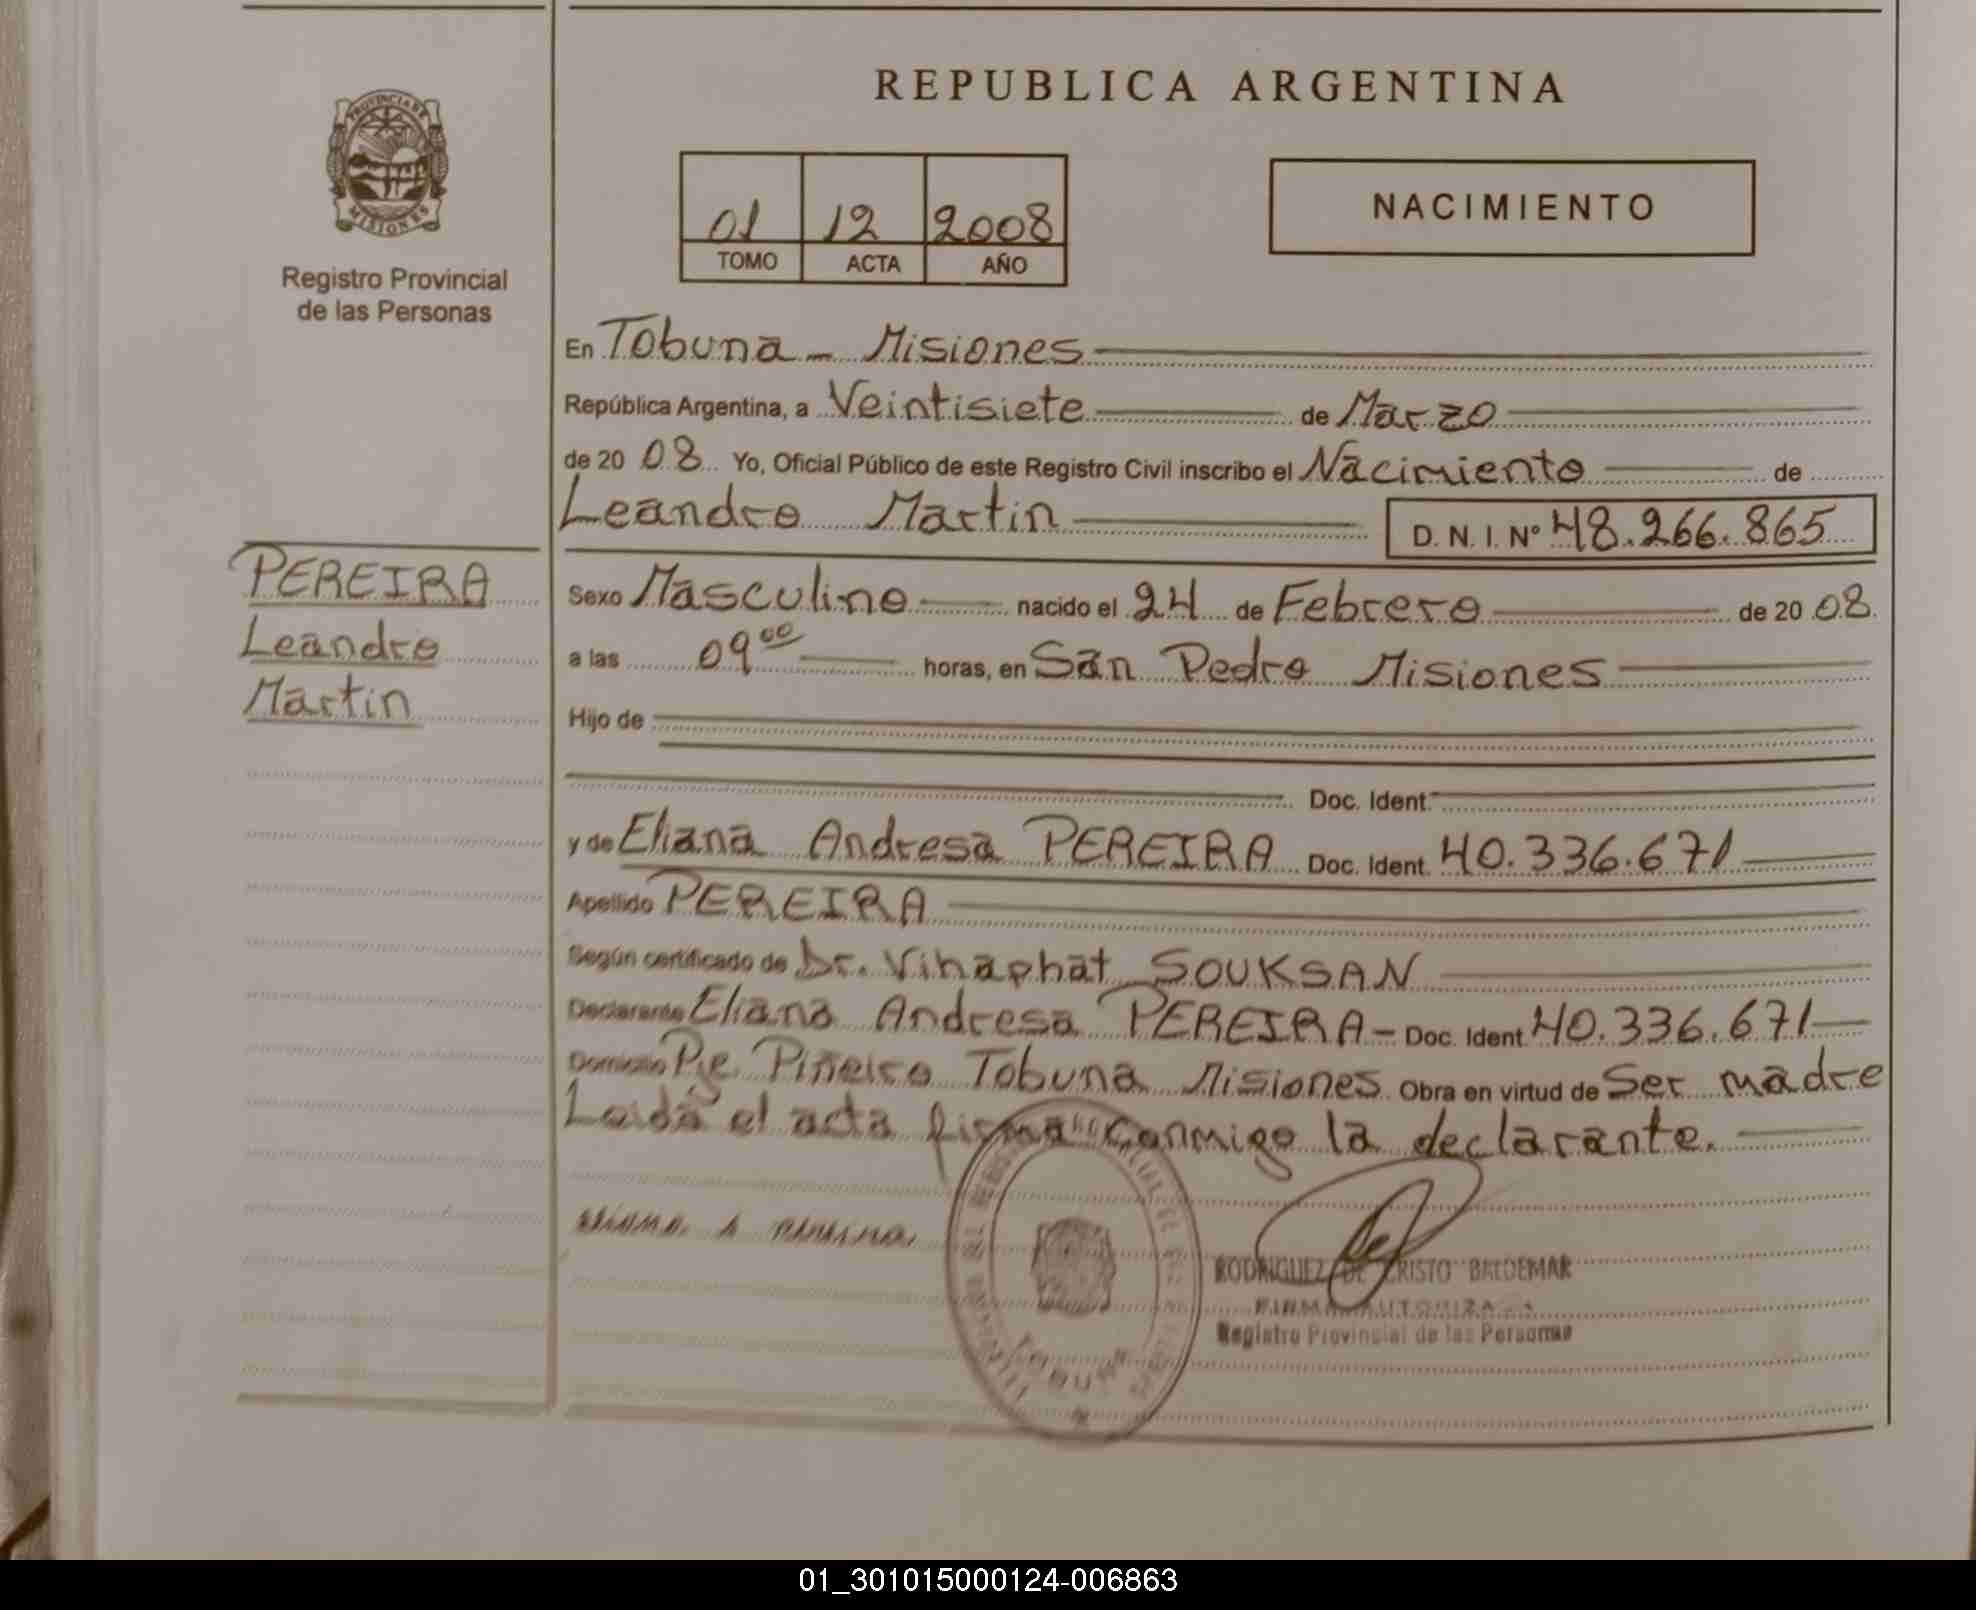 REPUBLICA ARGENTINA
PROVINCIA DE
MISIONES
Registro Provincial
de las Personas
01 12 2008
TOMO ACTA AÑO
NACIMIENTO
En Tobuna - Misiones
República Argentina, a Veintisiete de Marzo
de 20 08 Yo, Oficial Público de este Registro Civil inscribo el Nacimiento de
Leandro Martin D. N. I. Nº 48.266.865
PEREIRA
Leandro
Martin
Sexo Masculino nacido el 24 de Febrero de 20 08
a las 09 00 horas, en San Pedro Misiones
Hijo de
Doc. Ident.
y de Eliana Andresa PEREIRA Doc. Ident. 40.336.671
Apellido PEREIRA
Según certificado de Dr. Vihaphat SOUKSAN
Declarante Eliana Andresa PEREIRA - Doc. Ident. 40.336.671
Domicilio Pje. Piñeiro Tobuna Misiones Obra en virtud de Ser madre
Leida el acta firma conmigo la declarante.
RODRIGUEZ DE CRISTO BALDEMAR
FIRMA AUTORIZADA
Registro Provincial de las Personas
TOBUNA
01_301015000124-006863